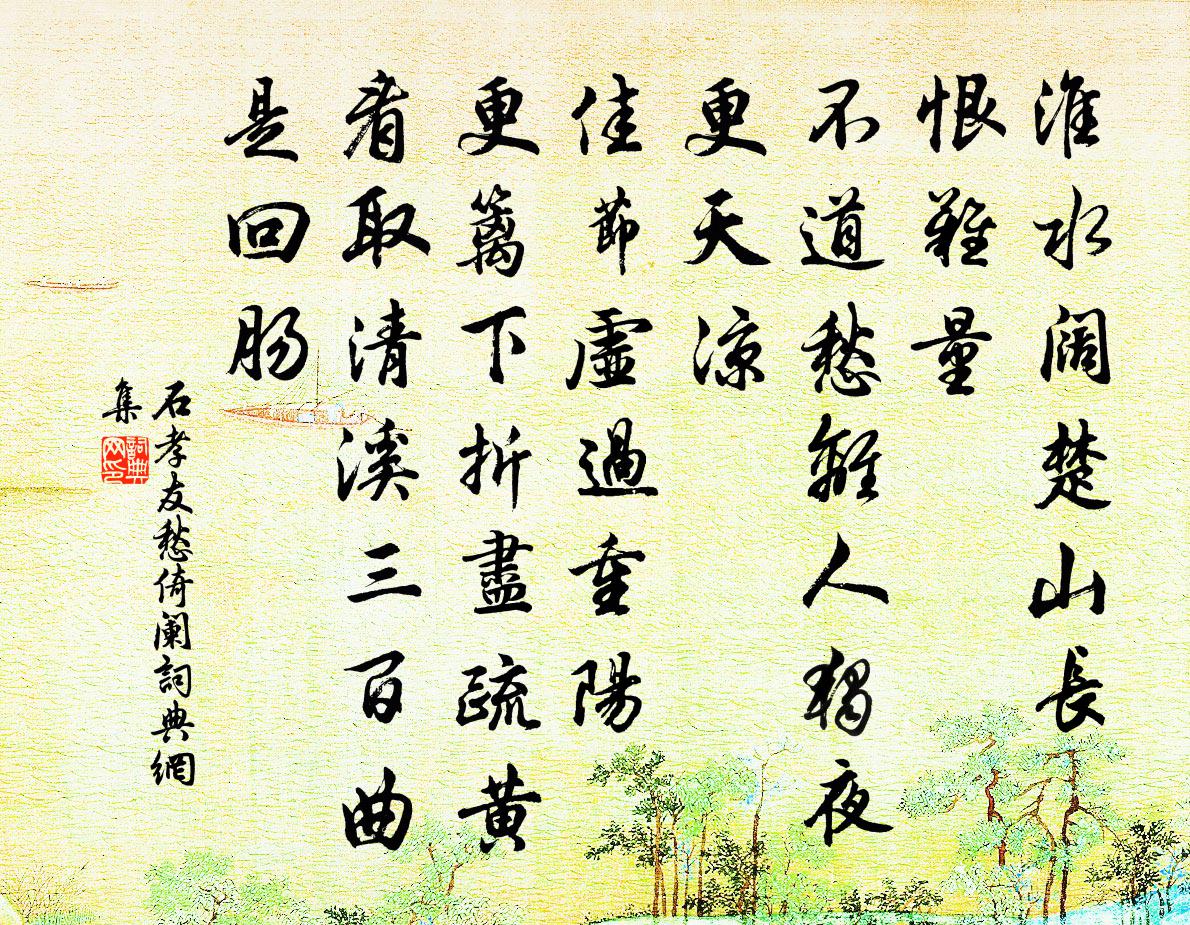 淮水闊楚山長
恨難量
不道愁離人獨夜
更天涼
佳節虛過重陽
更籬下折盡疏黃
看取清溪三百曲
是回腸
石孝友愁倚闌詞典網
集
詞典網印